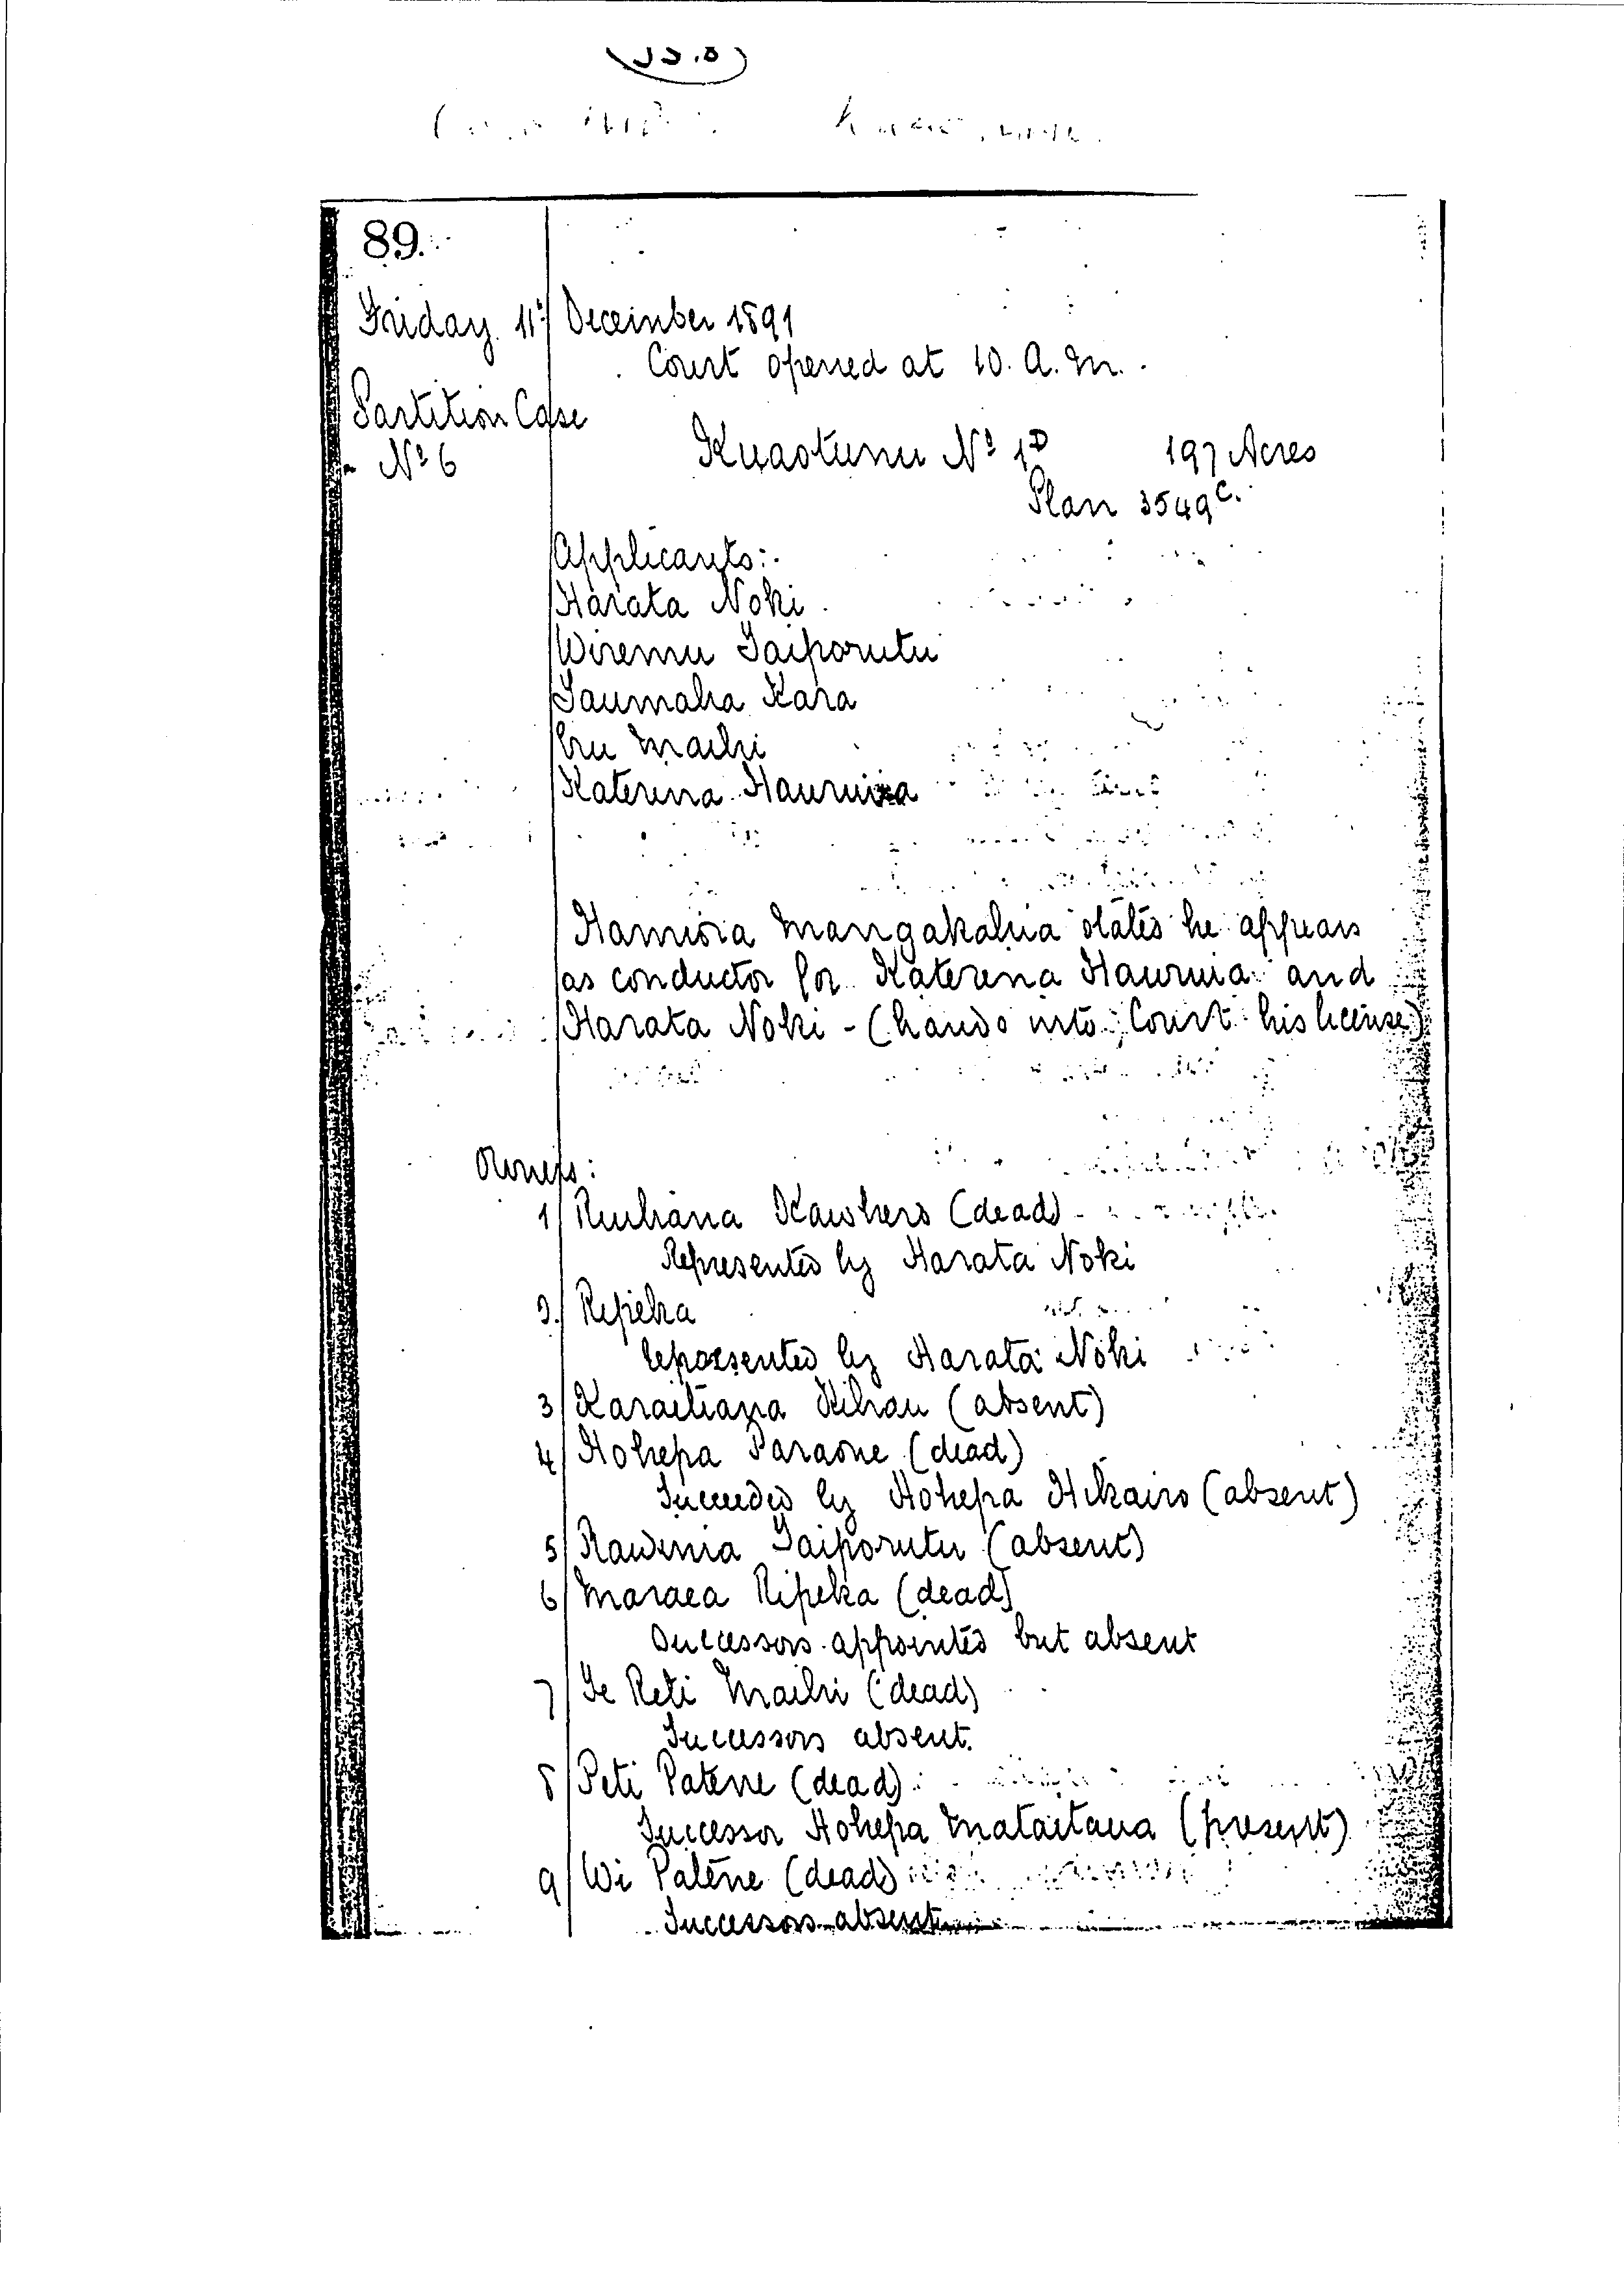 89.
Friday 11th December 1891
Court opened at 10. A.M.
Partition Case
No 6
Kuaotunu No 1D 197 Acres
Plan 3549C.
Applicants:
Harata Noki
Wiremu Taiporutu
Taumaha Kara
Eru Maihi
Katerina Hauruia
Hamiora Mangakahia states he appears
as conductor for Katerena Hauruia and
Harata Noki - (hands into Court his license)
Owners:
1/ Ruihana Kawhero (dead)
Represented by Harata Noki
2/ Ripeka
represented by Harata Noki
3/ Karaitiana Kihau (absent)
4/ Hohepa Paraone (dead)
Succeeded by Hohepa Hikairo (absent)
5/ Rawinia Taiporutu (absent)
6/ Maraea Ripeka (dead)
Successors appointed but absent
7/ Te Reti Maihi (dead)
Successors absent.
8/ Peti Patene (dead)
Successor Hohepa Mataitaua (present)
9/ Wi Patene (dead)
Successors absent